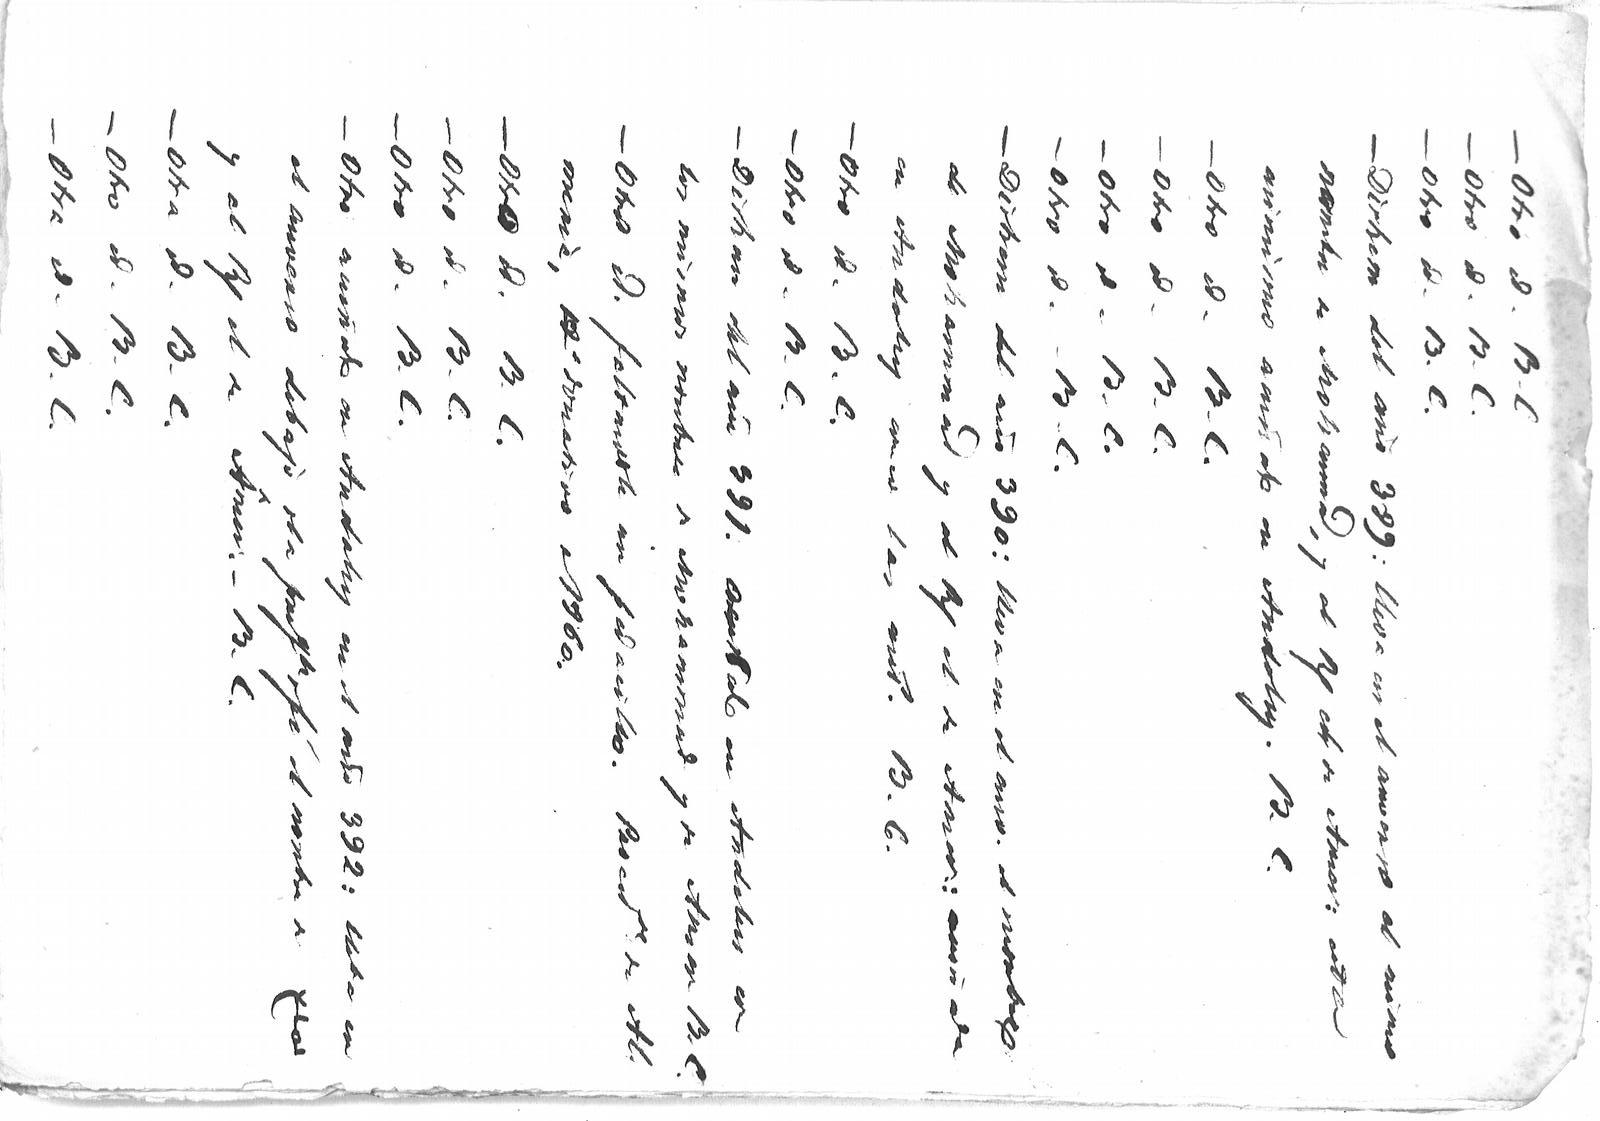 — Otro d. B. C.
— Otro d. B. C.
— Otro d. B. C.
— Dirhem del año 389: lleva en el anverso el mismo
nombre de Mohammad, y el Rf el de Amer: esta
mismo acuñado en Andalus. B. C.
— Otro d. B. C.
— Otro d. B. C.
— Otro d. B. C.
— Otro d. B. C.
— Dirhem del año 390: lleva en el anv. el nombre
de Mohammad y el Rf el de Amer: acuñada
en Andalus como las ant. B. C.
— Otro d. B. C.
— Otro d. B. C.
— Dirhem del año 391. acuñado en Andalus con
los mismos nombres de Mohammad y de Amer B. C.
— Otro d. faltandole un pedacito. Proced. de Al.
meria, donativo 1960.
— Otro d. B. C.
— Otro d. B. C.
— Otro d. B. C.
— Otro acuñado en Andalus en el año 392: lleva en
el anverso debajo de la prof. fé el nombre de
y al Rf el de Âmer. – B. C.
— Otra d. B. C.
— Otro d. B. C.
— Otra d. B. C.